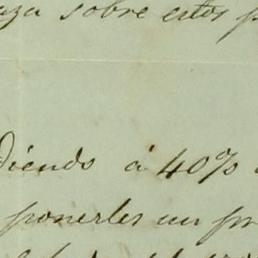 sobre estos
diendo á 40%
ponerles un